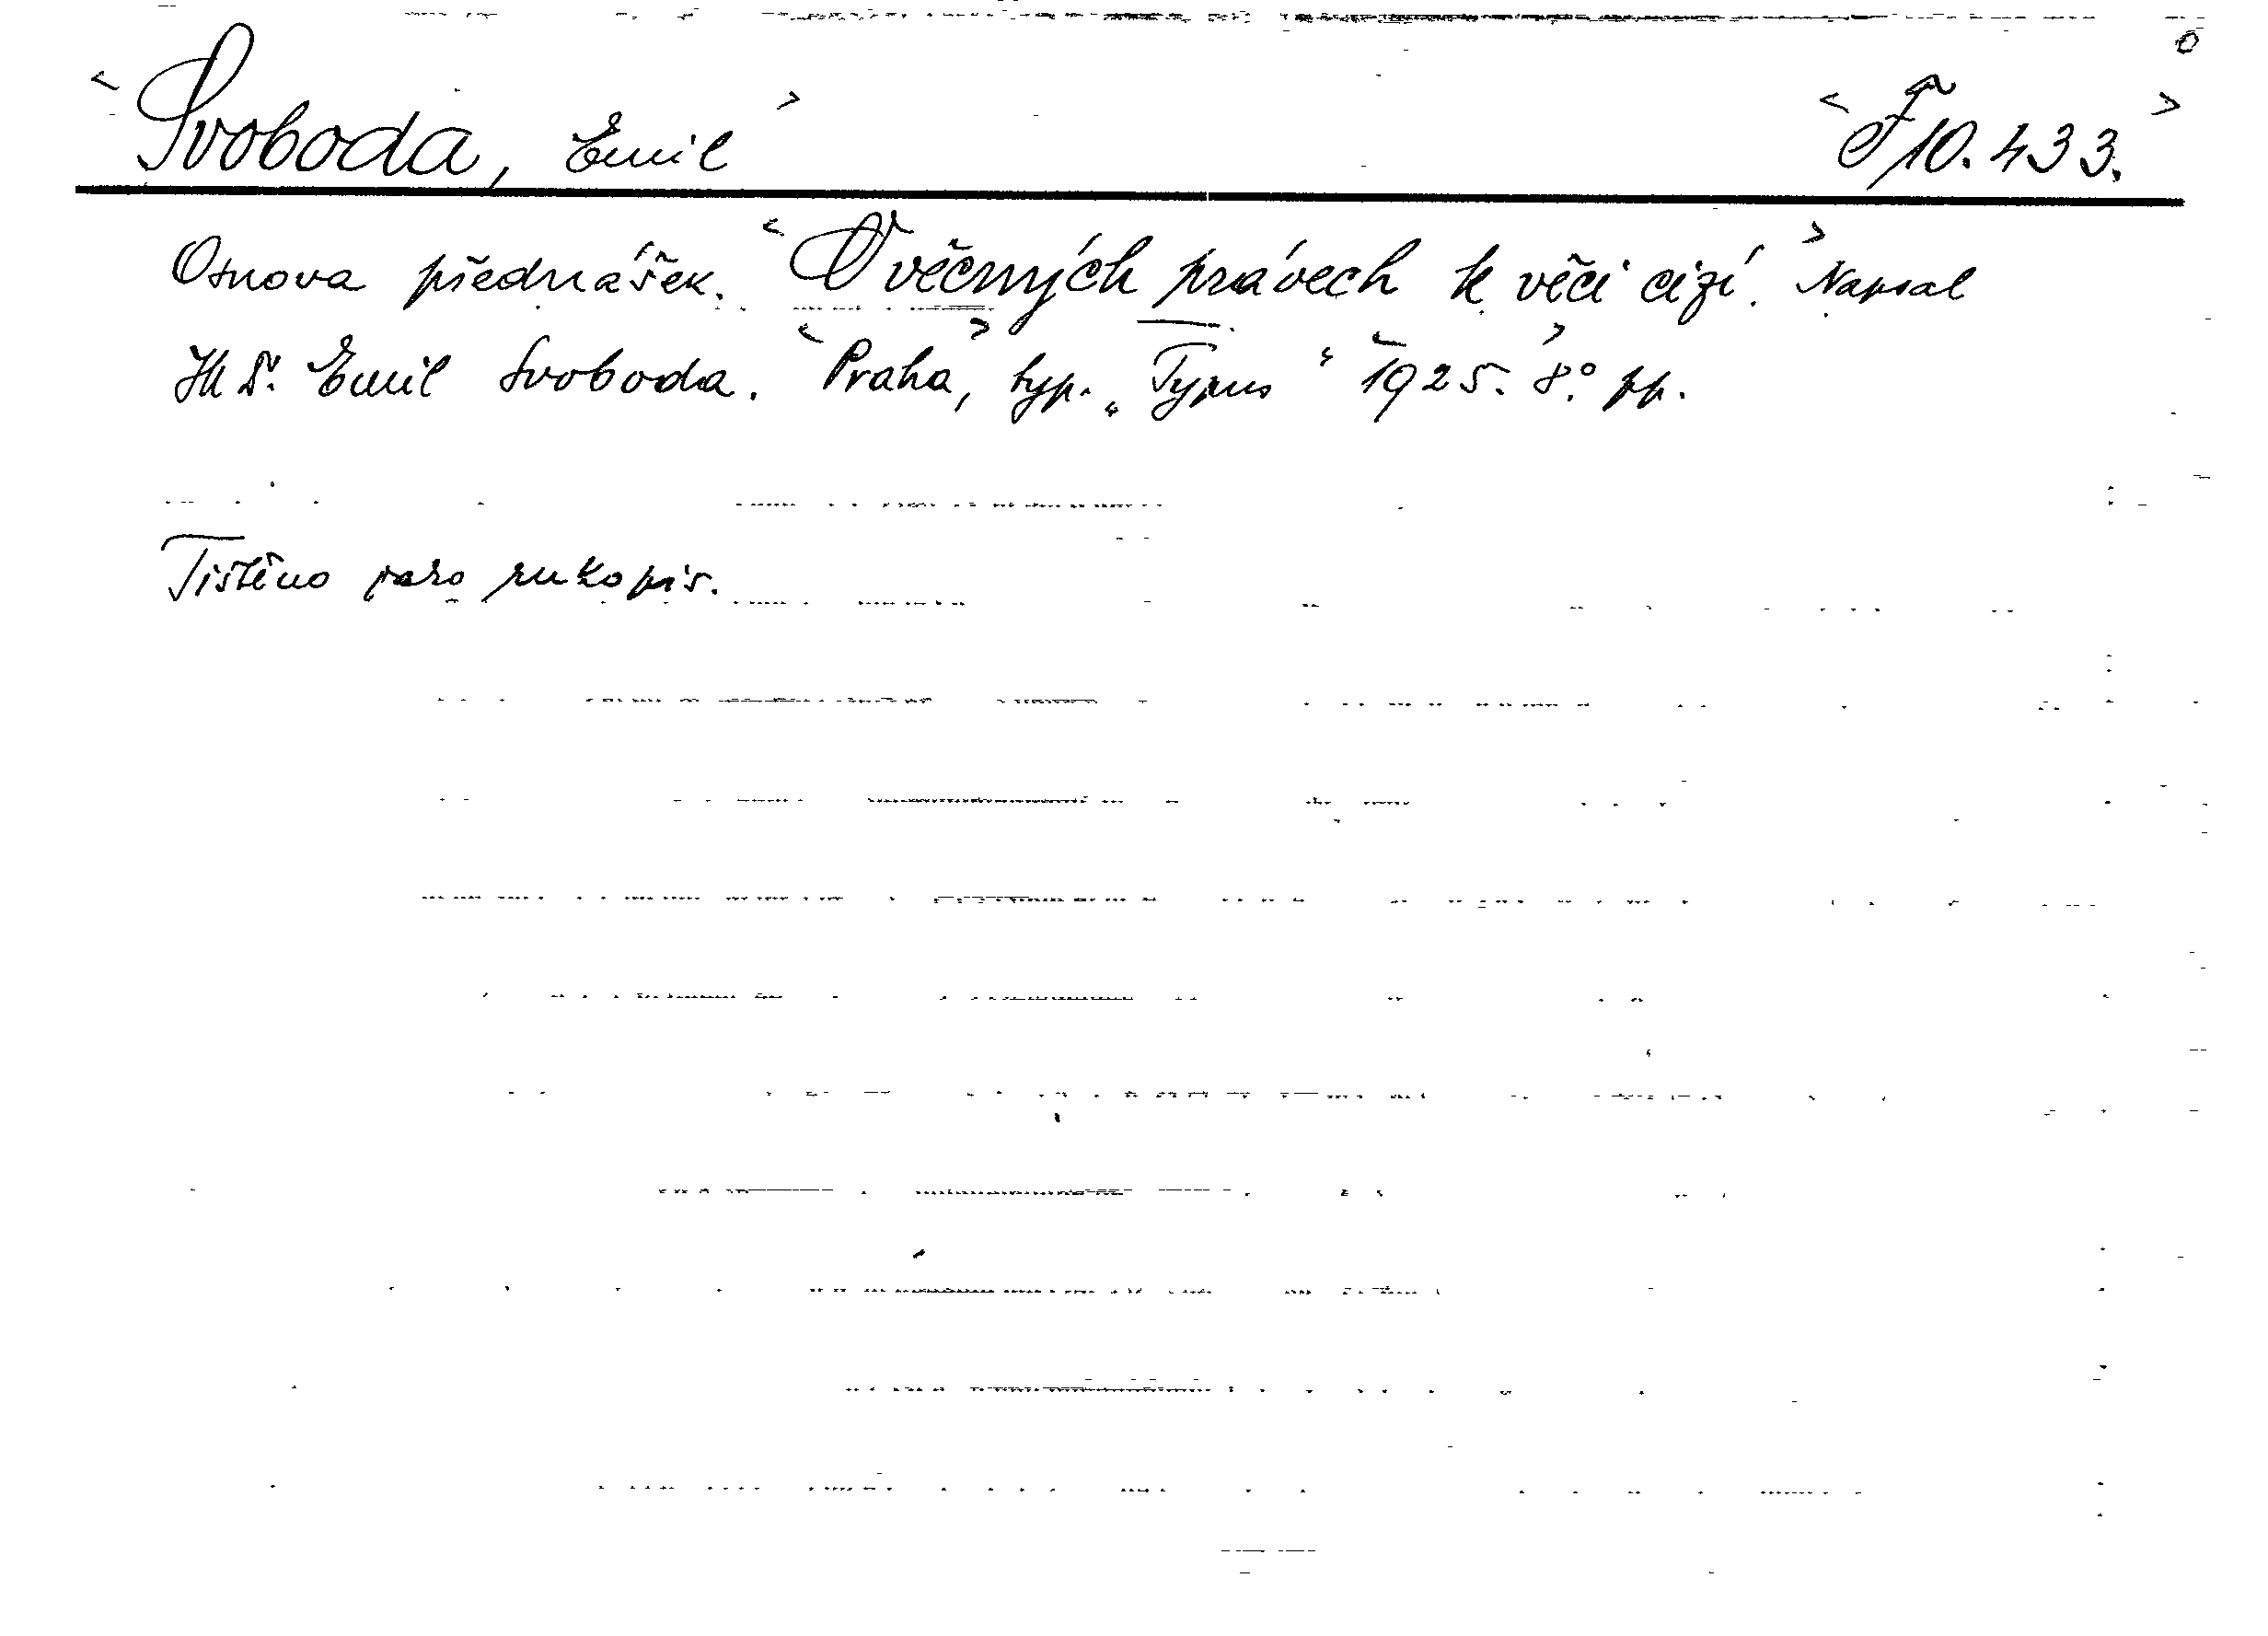 <Svoboda, Emil> <F 10.433.>
Osnova přednášek. <O věcných právech k věci cizí.> Napsal
Dr. Emil Svoboda. <Praha>, typ. „Typus" <1925.> 8.° pp.
Tištěno jako rukopis.